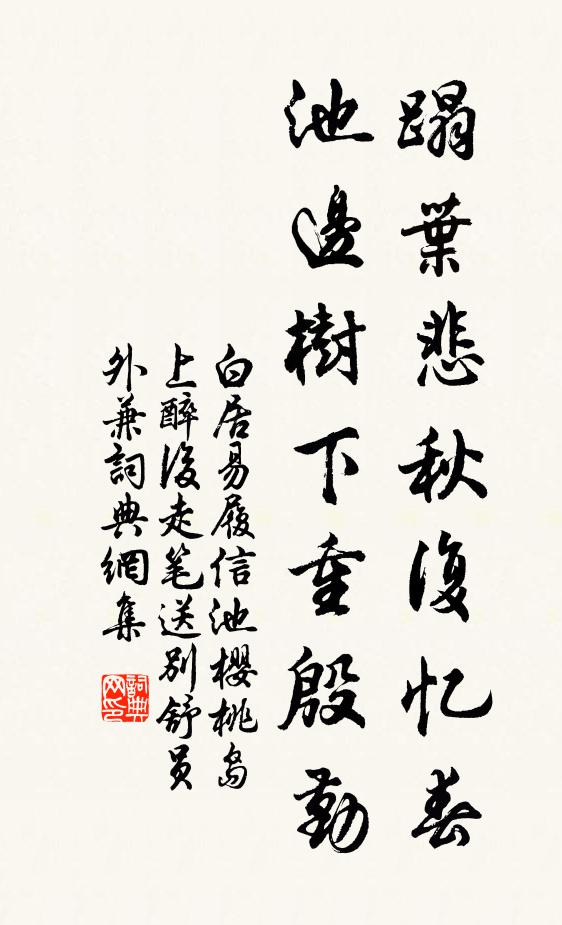 蹋葉悲秋復忆春
池邊樹下重殷勤
白居易履信池櫻桃島
上醉後走笔送别舒員
外兼詞典網集
詞典网印